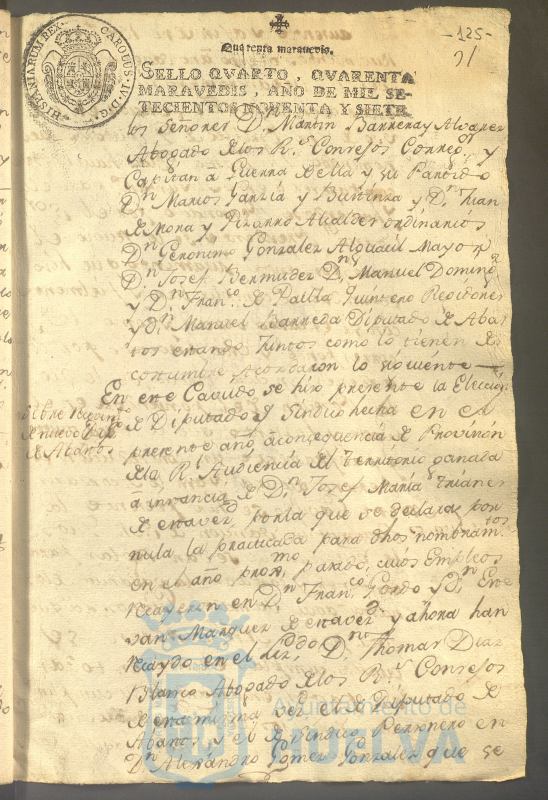 -125-
91
HISPANIARUM REX CAROLUS IV D G
Quarenta maravedis.
SELLO QVARTO, QVARENTA
MARAVEDIS, AÑO DE MIL SE-
TECIENTOS NOVENTA Y SIETE.
los Señores Dn. Martin Barrena y Alvarez
Abogado de los Rs. Consejos Correxor y
Capitan a Guerra de ella y su Partido
Dn Marcos Garzia y Bustinza y Dn. Juan
de Mora y Pizarro Alcaldes ordinarios
Dn Geronimo Gonzalez Alguacil Mayor
Dn. Josef Bermudez Dn Manuel Doming
y Dn. Franco. de Paula Quintero Regidores
y Dn. Manuel Barreda Diputado de Abas
tos estando Juntos como lo tienen de
costumbre Acordaron lo siguiente
En este Cavildo se hizo presente la Eleccion
de Diputado y Sindico hecha en el
presente año, a consequencia de Provision
de la Rl Audiencia del Territorio ganada
a instancia de Dn. Josef Maria Trianes
de esta vezd por la que se declara por
nula la practicada para dhos nombramtos
en el año proxmo. pasado, cuios Empleos
recayeron en Dn. Franco. Gordo y Dn. Este
van Marquez de esta vezd. y ahora han
recaydo en el Lizdo. Dn. Thomas Diaz
Blanco Abogado de los Rs Consejos
de esta misma vezd el de Diputado de
Abastos y el de Sindico Personero en
Dn Alexandro Gomez Gonzalez que se
Sobre
de nuevo
de Abastos
Ayuntamiento de
HUELVA